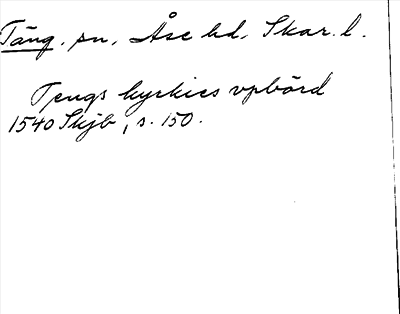 Täng. sn, Åse hd, Skar. l.
Tengs kyrkies vpbörd
1540 Skjb, s. 150.